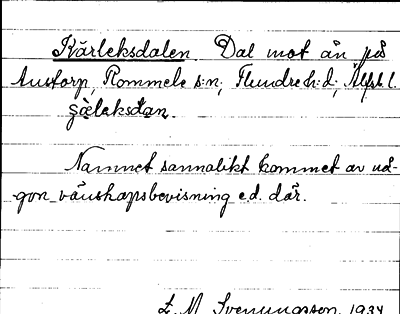 Kärleksdalen. Dal mot ån på
Anstorp, Rommele s:n, Flundre h:d, Älfsb. l.
Namnet sannolikt kommet av nå-
gon vänskapsbevisning e.d. där.
E. M. Svenungsson. 1934